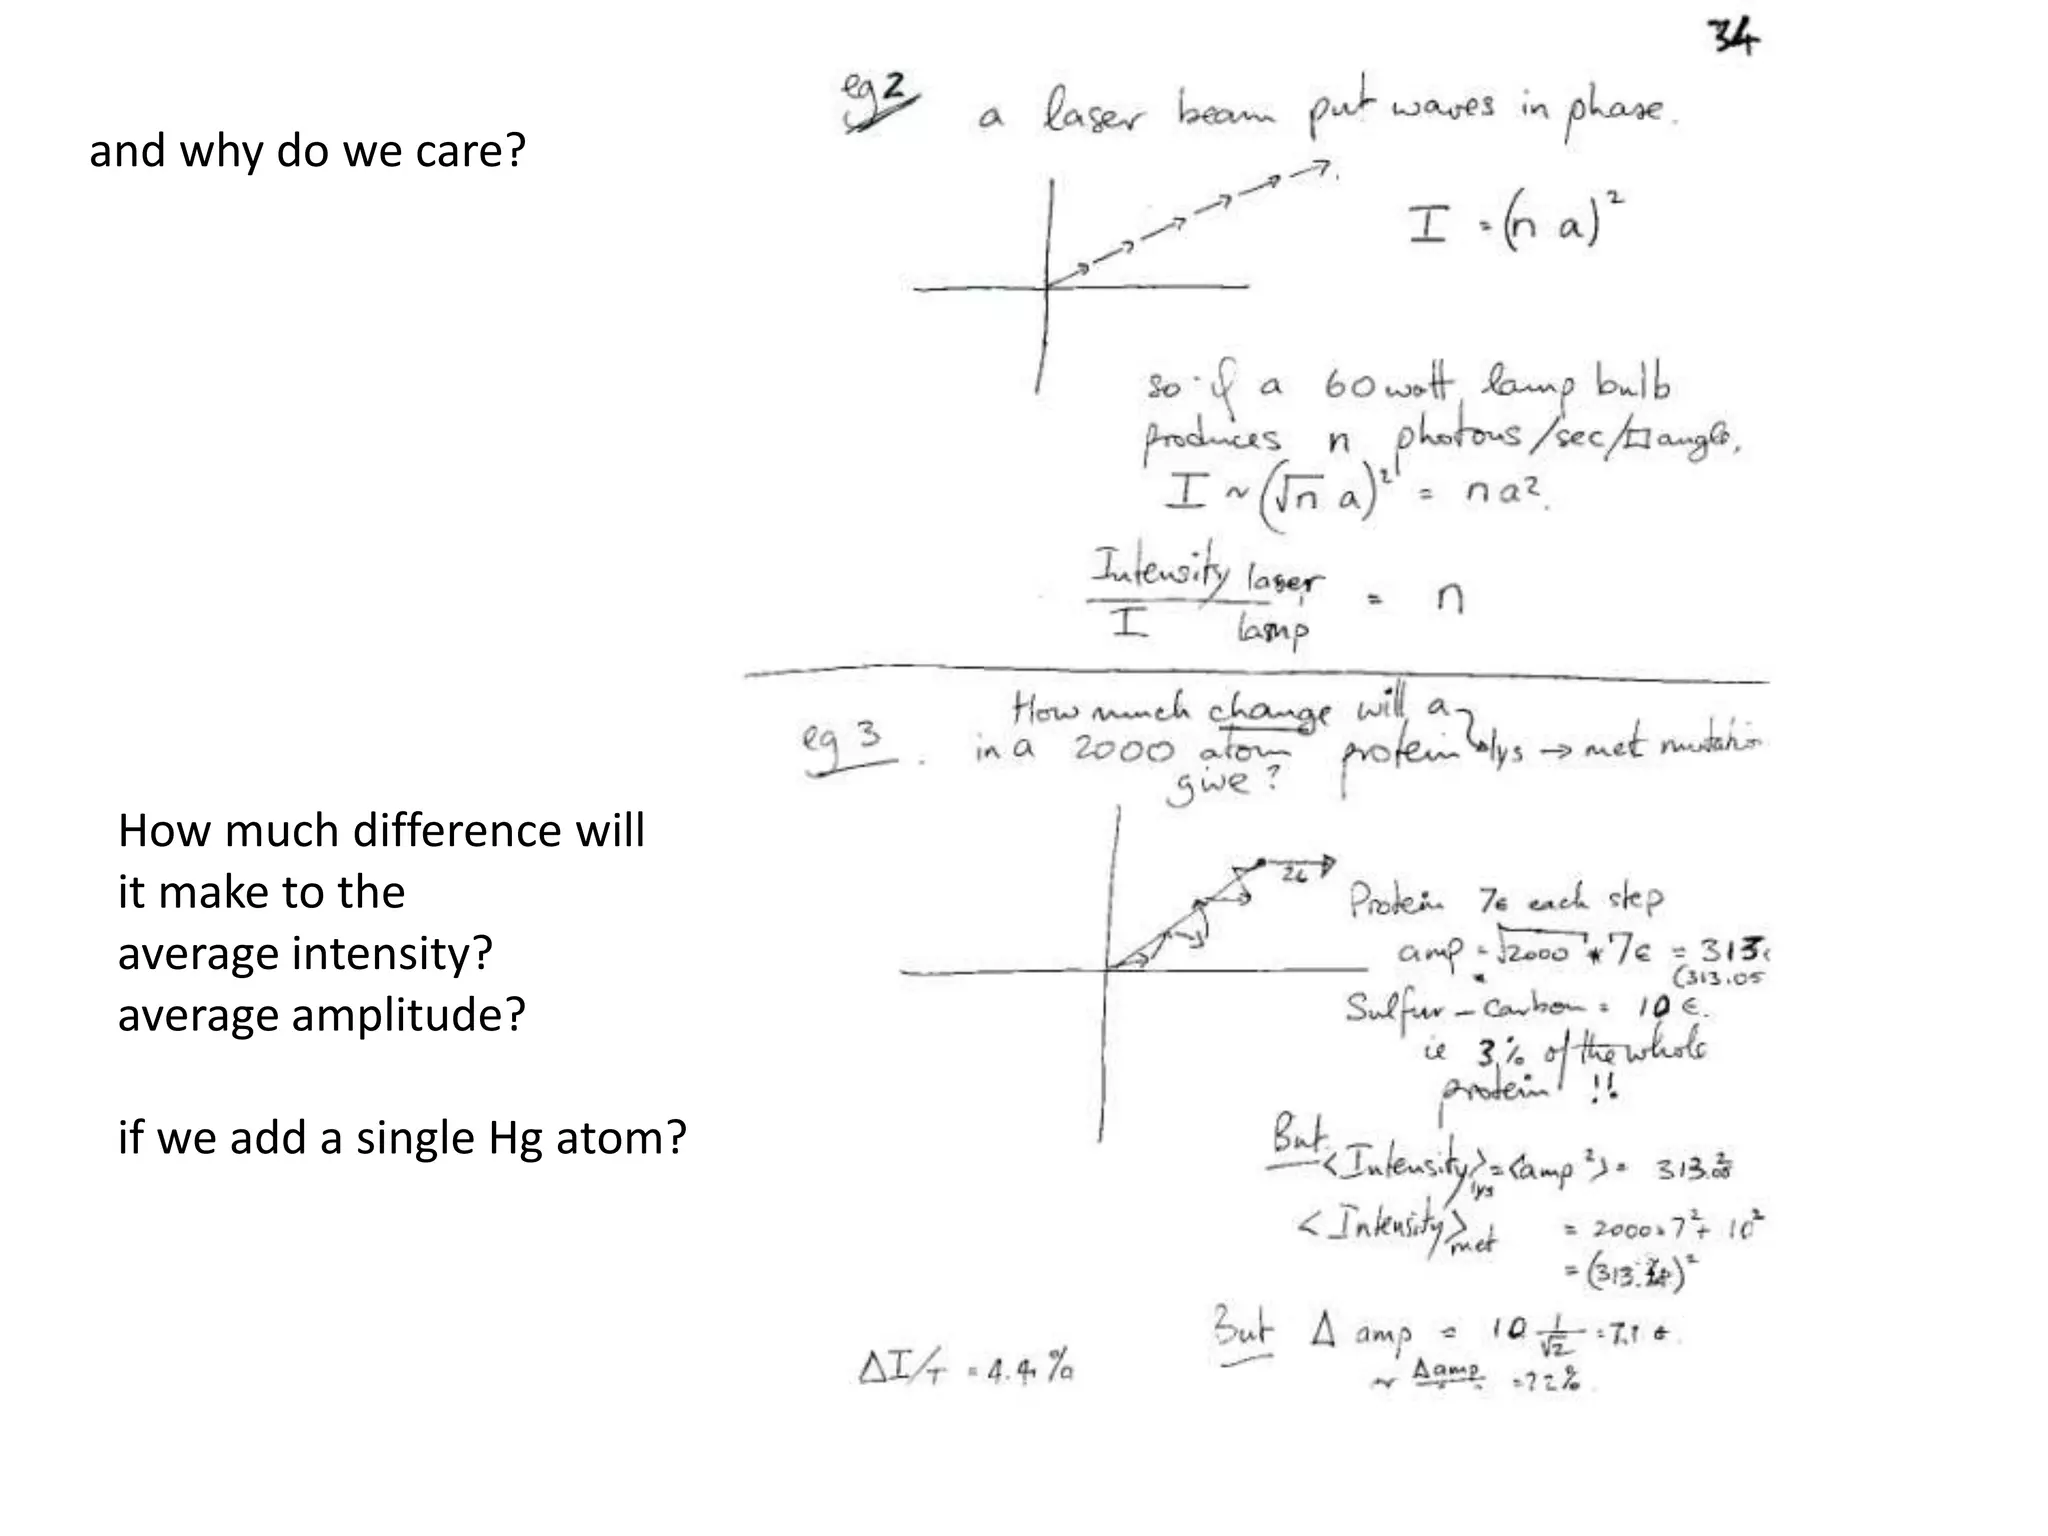 34
and why do we care?
eg 2 a laser beam put waves in phase.
I = (n a)²
so if a 60 watt lamp bulb
produces n photons/sec/□ angle.
I ~ (√n a)² = n a².
Intensity laser
I lamp
= n
eg 3. How much change will a
in a 2000 atom protein lys → met mutation
give?
How much difference will
it make to the
average intensity?
average amplitude?
if we add a single Hg atom?
Protein 7e each step
amp = √2000 * 7e = 313
(313.05
Sulfur - carbon = 10 e.
ie 3% of the whole
protein !!
But
<Intensity>lys = <amp²> = 313.
<Intensity>met = 2000 * 7² + 10²
= (313. )²
But Δ amp = 10 1/√2 = 7.1 e
~ Δamp
ΔI/I = 4.4%